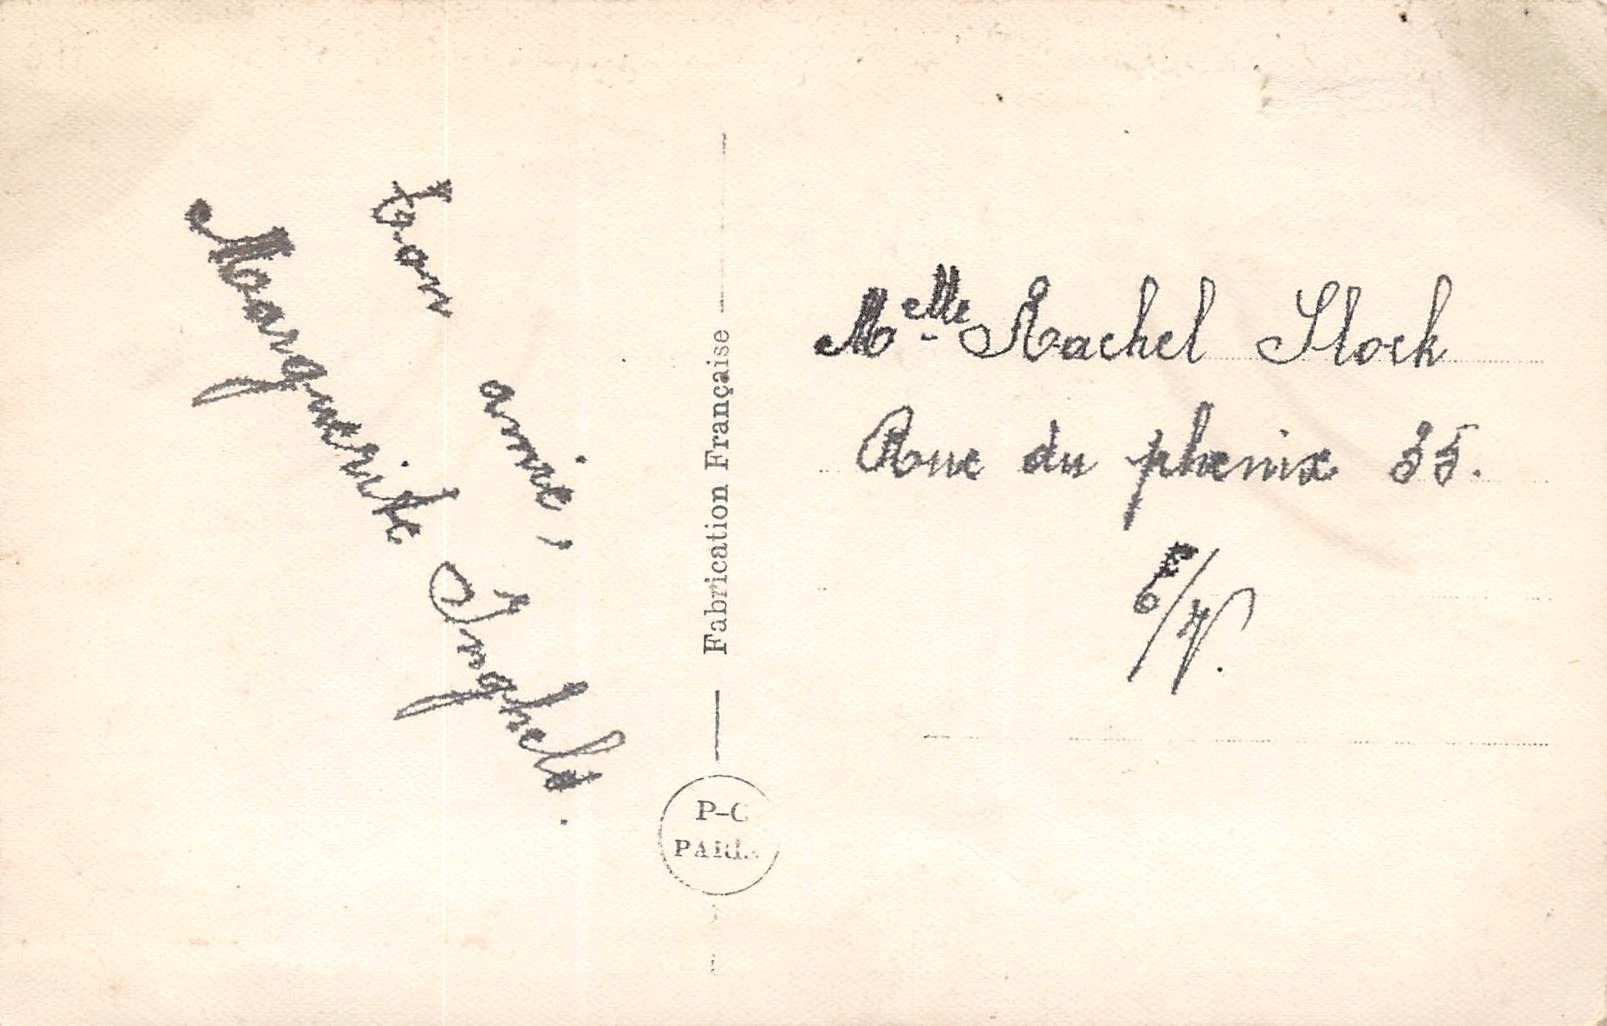 Ton amie,
Marguerite Inghels.
Fabrication Française
P-C
PARIS
Melle Rachel Stock
Rue du phenix 35.
E/V.